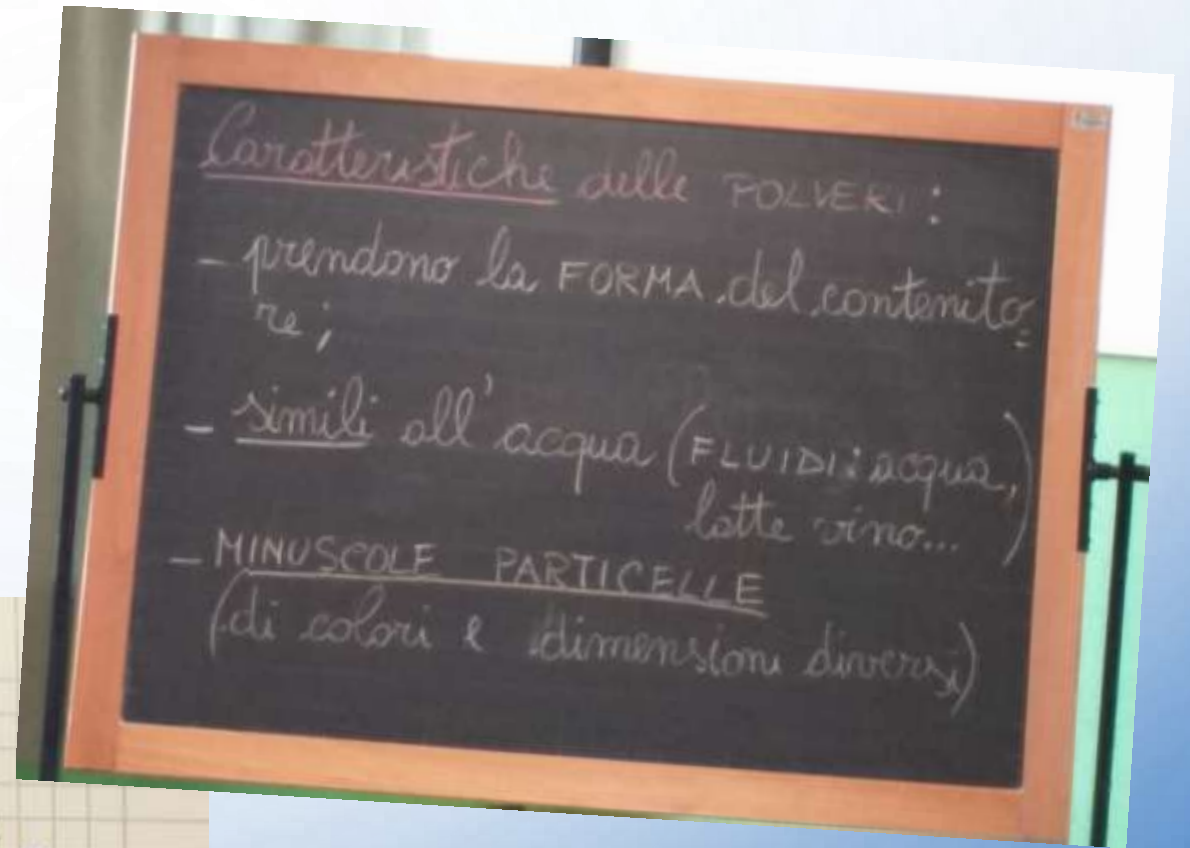 Caratteristiche delle POLVERI:
- prendono la FORMA del contenito=
re;
- simili all'acqua (FLUIDI: acqua,
latte vino...)
- MINUSCOLE PARTICELLE
(di colori e dimensioni diversi)